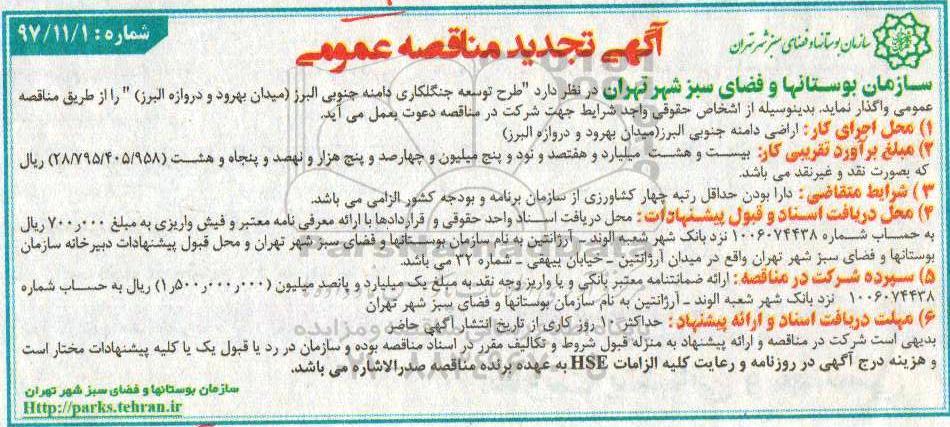 سازمان بوستانها و فضای سبز شهر تهران
آگهی تجدید مناقصه عمومی
شماره: ۹۷/۱۱/۱
سازمان بوستانها و فضای سبز شهر تهران در نظر دارد "طرح توسعه جنگلکاری دامنه جنوبی البرز (میدان بهرود و دروازه البرز) " را از طریق مناقصه
عمومی واگذار نماید. بدینوسیله از اشخاص حقوقی واجد شرایط جهت شرکت در مناقصه دعوت بعمل می آید.
۱) محل اجرای کار: اراضی دامنه جنوبی البرز(میدان بهرود و دروازه البرز)
۲) مبلغ برآورد تقریبی کار: بیست و هشت میلیارد و هفتصد و نود و پنج میلیون و چهارصد و پنج هزار و نهصد و پنجاه و هشت (۲۸/۷۹۵/۴۰۵/۹۵۸) ریال
که بصورت نقد و غیرنقد می باشد.
۳) شرایط متقاضی: دارا بودن حداقل رتبه چهار کشاورزی از سازمان برنامه و بودجه کشور الزامی می باشد.
۴) محل دریافت اسناد و قبول پیشنهادات: محل دریافت اسناد واحد حقوقی و قراردادها با ارائه معرفی نامه معتبر و فیش واریزی به مبلغ ۷۰۰٫۰۰۰ ریال
به حساب شماره ۱۰۰۶۰۷۴۴۳۸ نزد بانک شهر شعبه الوند - آرژانتین به نام سازمان بوستانها و فضای سبز شهر تهران و محل قبول پیشنهادات دبیرخانه سازمان
بوستانها و فضای سبز شهر تهران واقع در میدان آرژانتین - خیابان بیهقی - شماره ۳۲ می باشد.
۵) سپرده شرکت در مناقصه: ارائه ضمانتنامه معتبر بانکی و یا واریز وجه نقد به مبلغ یک میلیارد و پانصد میلیون (۱٫۵۰۰٫۰۰۰٫۰۰۰) ریال به حساب شماره
۱۰۰۶۰۷۴۴۳۸ نزد بانک شهر شعبه الوند - آرژانتین به نام سازمان بوستانها و فضای سبز شهر تهران
۶) مهلت دریافت اسناد و ارائه پیشنهاد: حداکثر ۱۰ روز کاری از تاریخ انتشار آگهی حاضر
بدیهی است شرکت در مناقصه و ارائه پیشنهاد به منزله قبول شروط و تکالیف مقرر در اسناد مناقصه بوده و سازمان در رد یا قبول یک یا کلیه پیشنهادات مختار است
و هزینه درج آگهی در روزنامه و رعایت کلیه الزامات HSE به عهده برنده مناقصه صدرالاشاره می باشد.
سازمان بوستانها و فضای سبز شهر تهران
Http://parks.tehran.ir